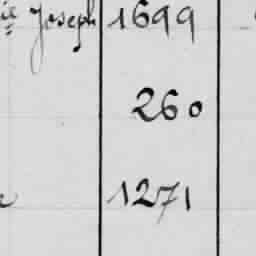 Joseph 1699
260
1271